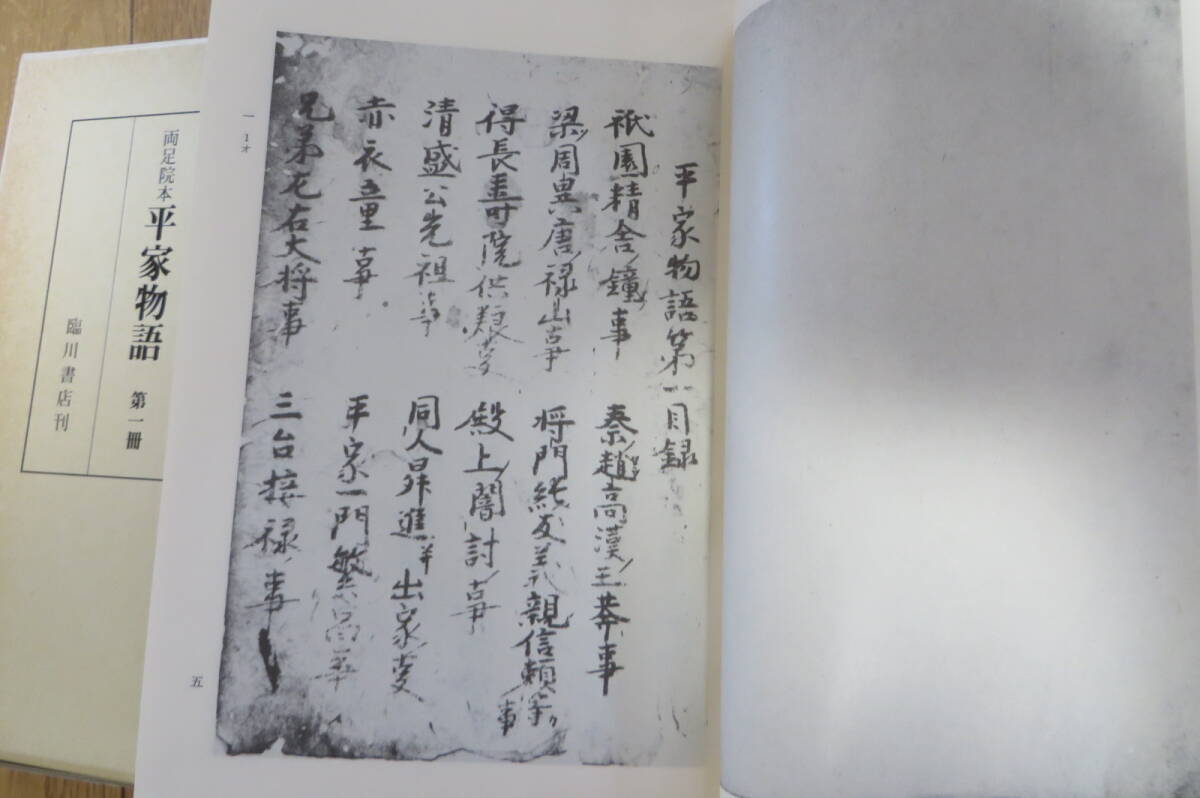 平家物語第一目録
祇園精舎ノ鐘ノ事
秦ノ趙高漢ノ王莽事
梁ノ周異唐ノ禄山事
将門純友義親信頼等事
得長寿院供養事
殿上ノ闇討事
清盛公先祖事
同人昇進并出家事
赤衣童事
平家一門繁昌事
兄弟左右大将事
三台接禄ノ事
一
1オ
五
両足院本
平家物語
第一冊
臨川書店刊